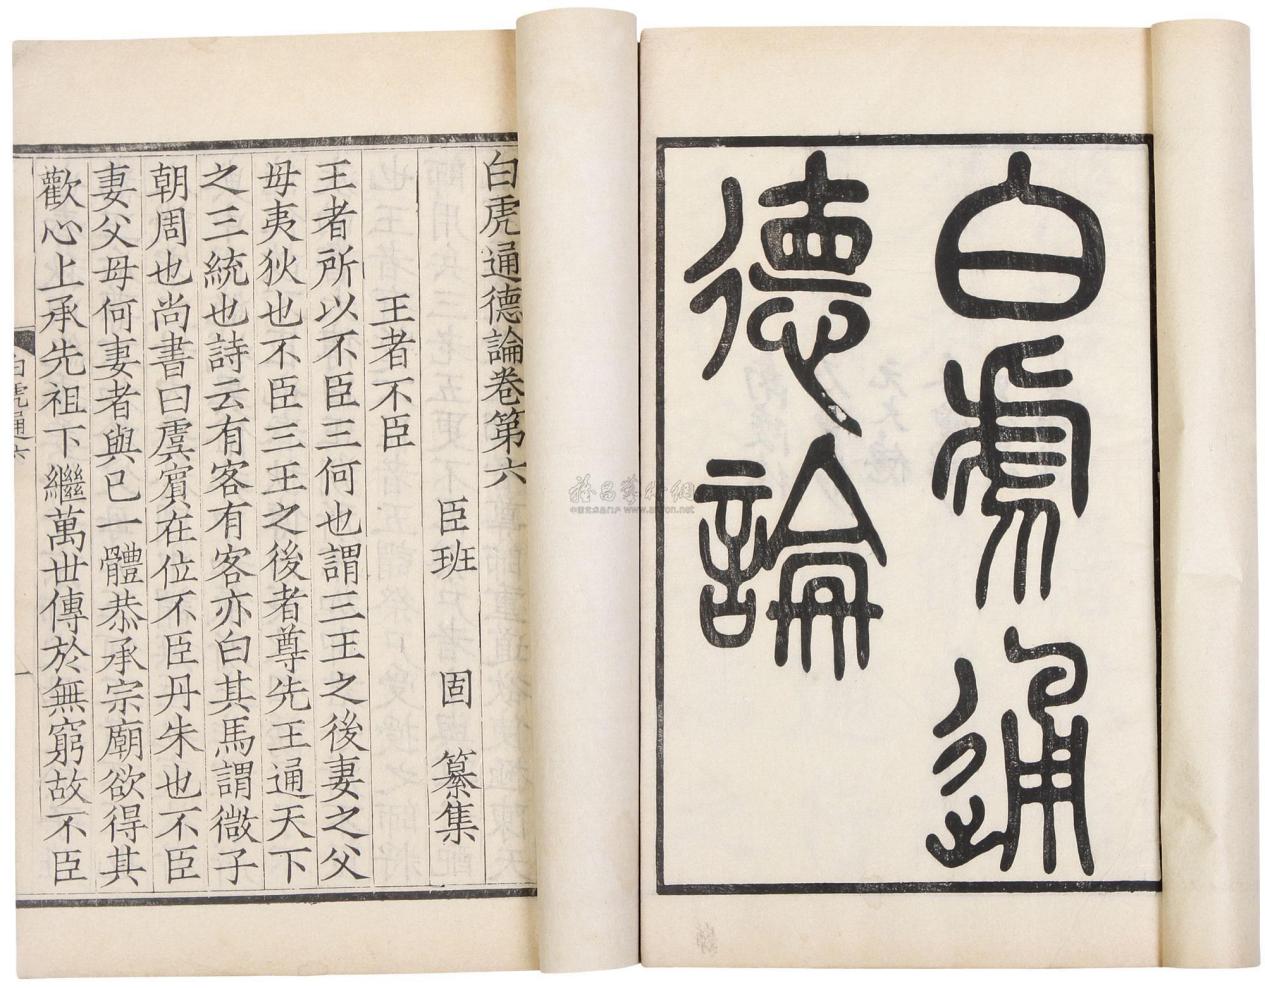 白虎通
德論
白虎通德論卷第六
臣班 固 纂集
王者不臣
王者所以不臣三何也謂三王之後妻之父
母夷狄也不臣三王之後者尊先王通天下
之三統也詩云有客有客亦白其馬謂微子
朝周也尚書曰虞賓在位不臣丹朱也不臣
妻父母何妻者與己一體恭承宗廟欲得其
歡心上承先祖下繼萬世傳於無窮故不臣
白虎通六
www.artron.net